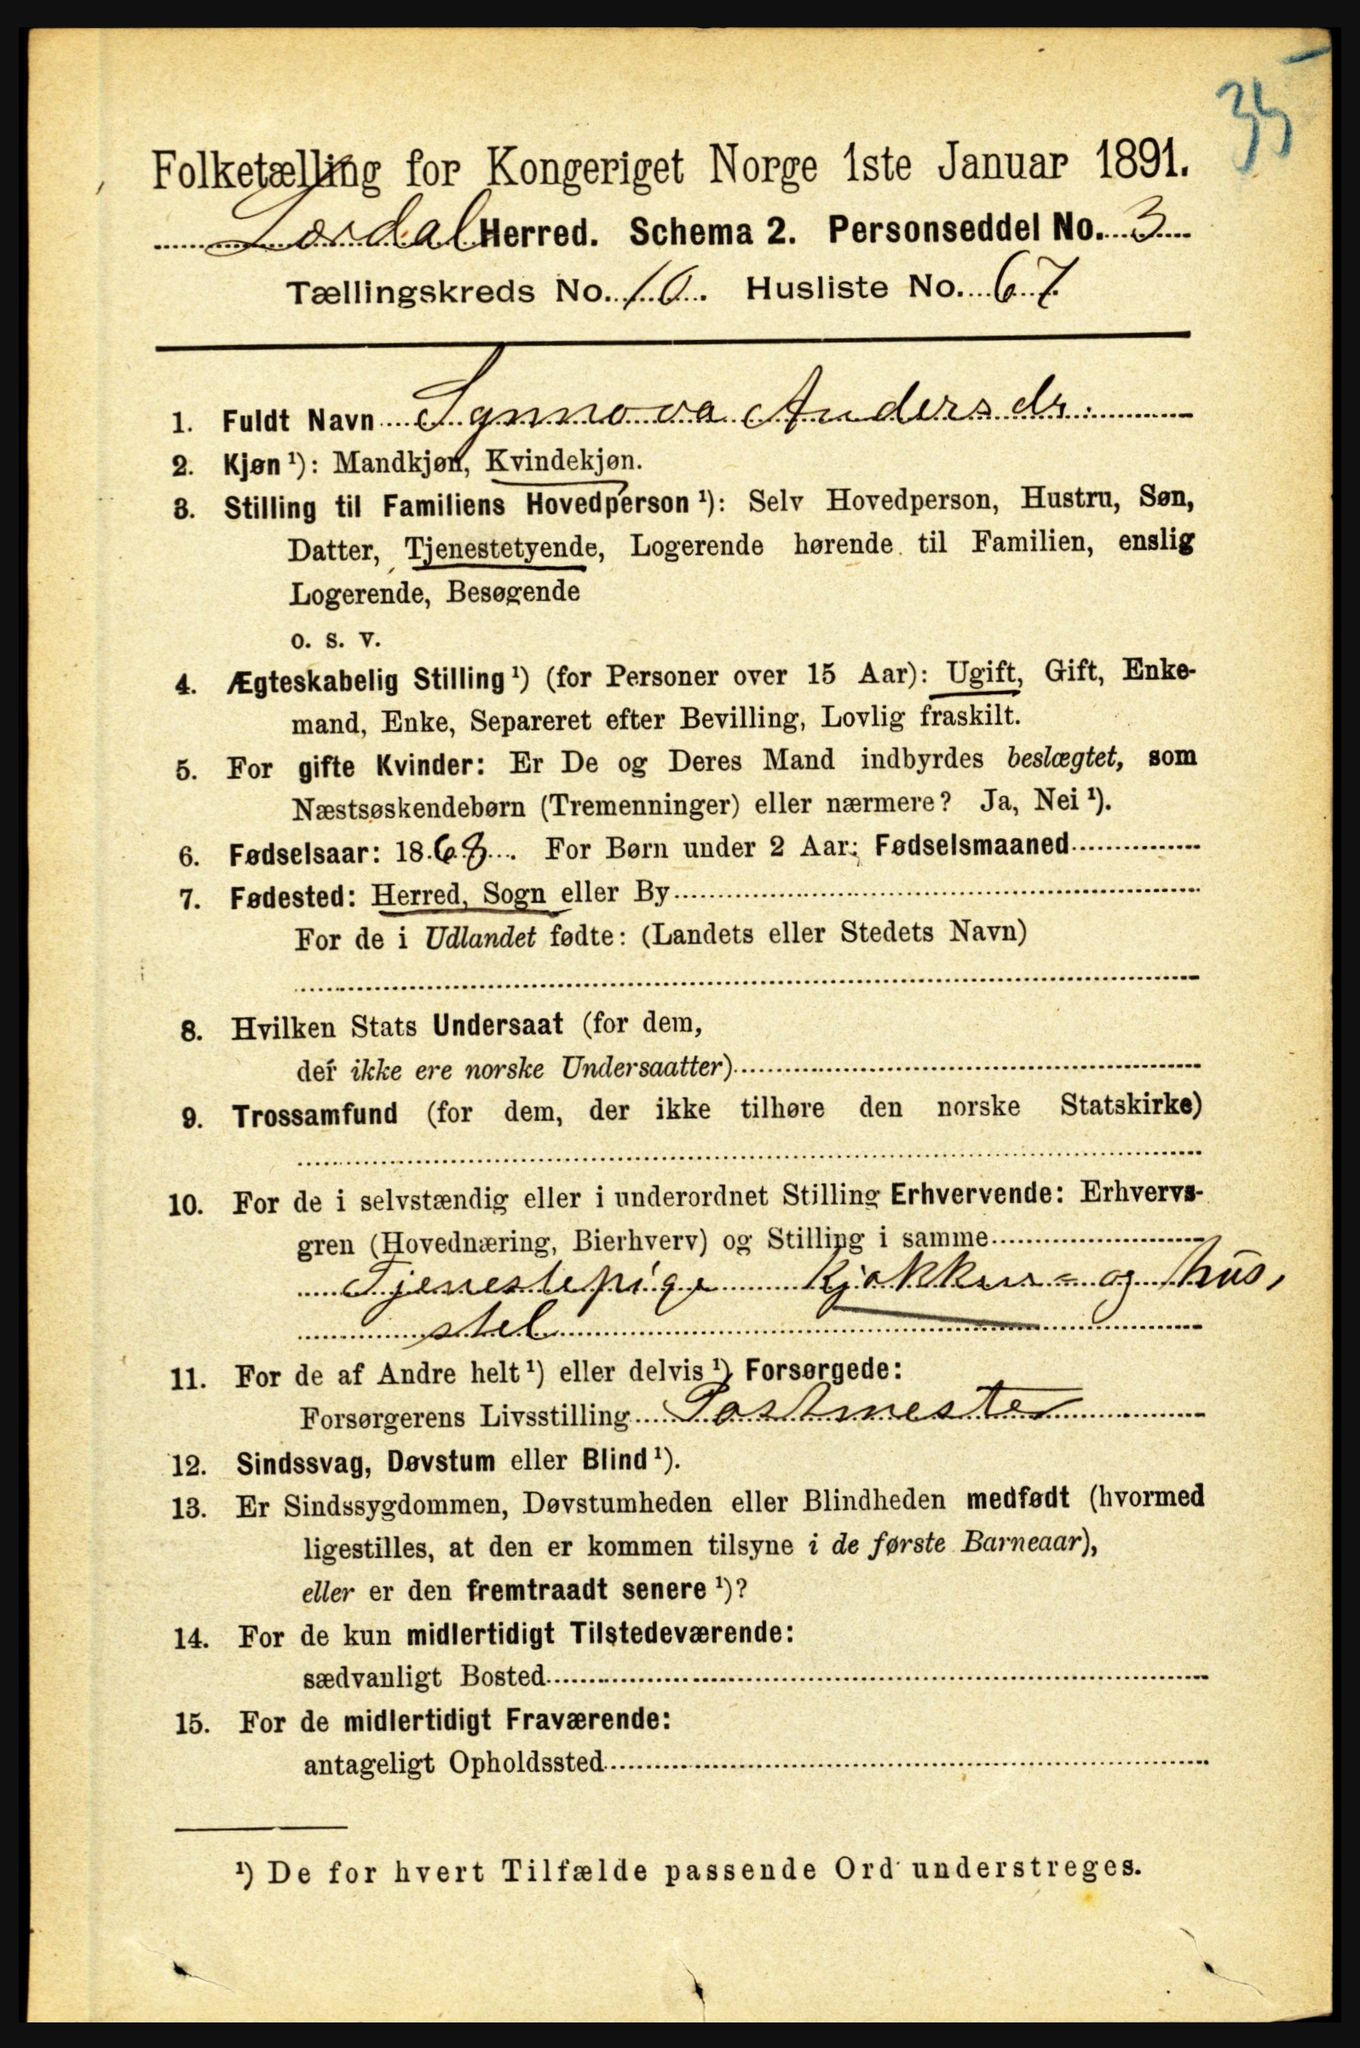 35
Folketælling for Kongeriget Norge 1ste Januar 1891.
Lærdal Herred. Schema 2. Personseddel No. 3
Tællingskreds No. 10. Husliste No. 67
1. Fuldt Navn Synnova Andersdr.
2. Kjøn ¹): Mandkjøn, Kvindekjøn.
3. Stilling til Familiens Hovedperson ¹): Selv Hovedperson, Hustru, Søn,
Datter, Tjenestetyende, Logerende hørende til Familien, enslig
Logerende, Besøgende
o. s. v.
4. Ægteskabelig Stilling ¹) (for Personer over 15 Aar): Ugift, Gift, Enke-
mand, Enke, Separeret efter Bevilling, Lovlig fraskilt.
5. For gifte Kvinder: Er De og Deres Mand indbyrdes beslægtet, som
Næstsøskendebørn (Tremenninger) eller nærmere? Ja, Nei ¹).
6. Fødselsaar: 1868. For Børn under 2 Aar: Fødselsmaaned
7. Fødested: Herred, Sogn eller By
For de i Udlandet fødte: (Landets eller Stedets Navn)
8. Hvilken Stats Undersaat (for dem,
der ikke ere norske Undersaatter)
9. Trossamfund (for dem, der ikke tilhøre den norske Statskirke)
10. For de i selvstændig eller i underordnet Stilling Erhvervende: Erhvervs-
gren (Hovednæring, Bierhverv) og Stilling i samme
Tjenestepige kjøkken- og hus,
stel
11. For de af Andre helt ¹) eller delvis ¹) Forsørgede:
Forsørgerens Livsstilling Postmester
12. Sindssvag, Døvstum eller Blind ¹).
13. Er Sindssygdommen, Døvstumheden eller Blindheden medfødt (hvormed
ligestilles, at den er kommen tilsyne i de første Barneaar),
eller er den fremtraadt senere ¹)?
14. For de kun midlertidigt Tilstedeværende:
sædvanligt Bosted
15. For de midlertidigt Fraværende:
antageligt Opholdssted
¹) De for hvert Tilfælde passende Ord understreges.